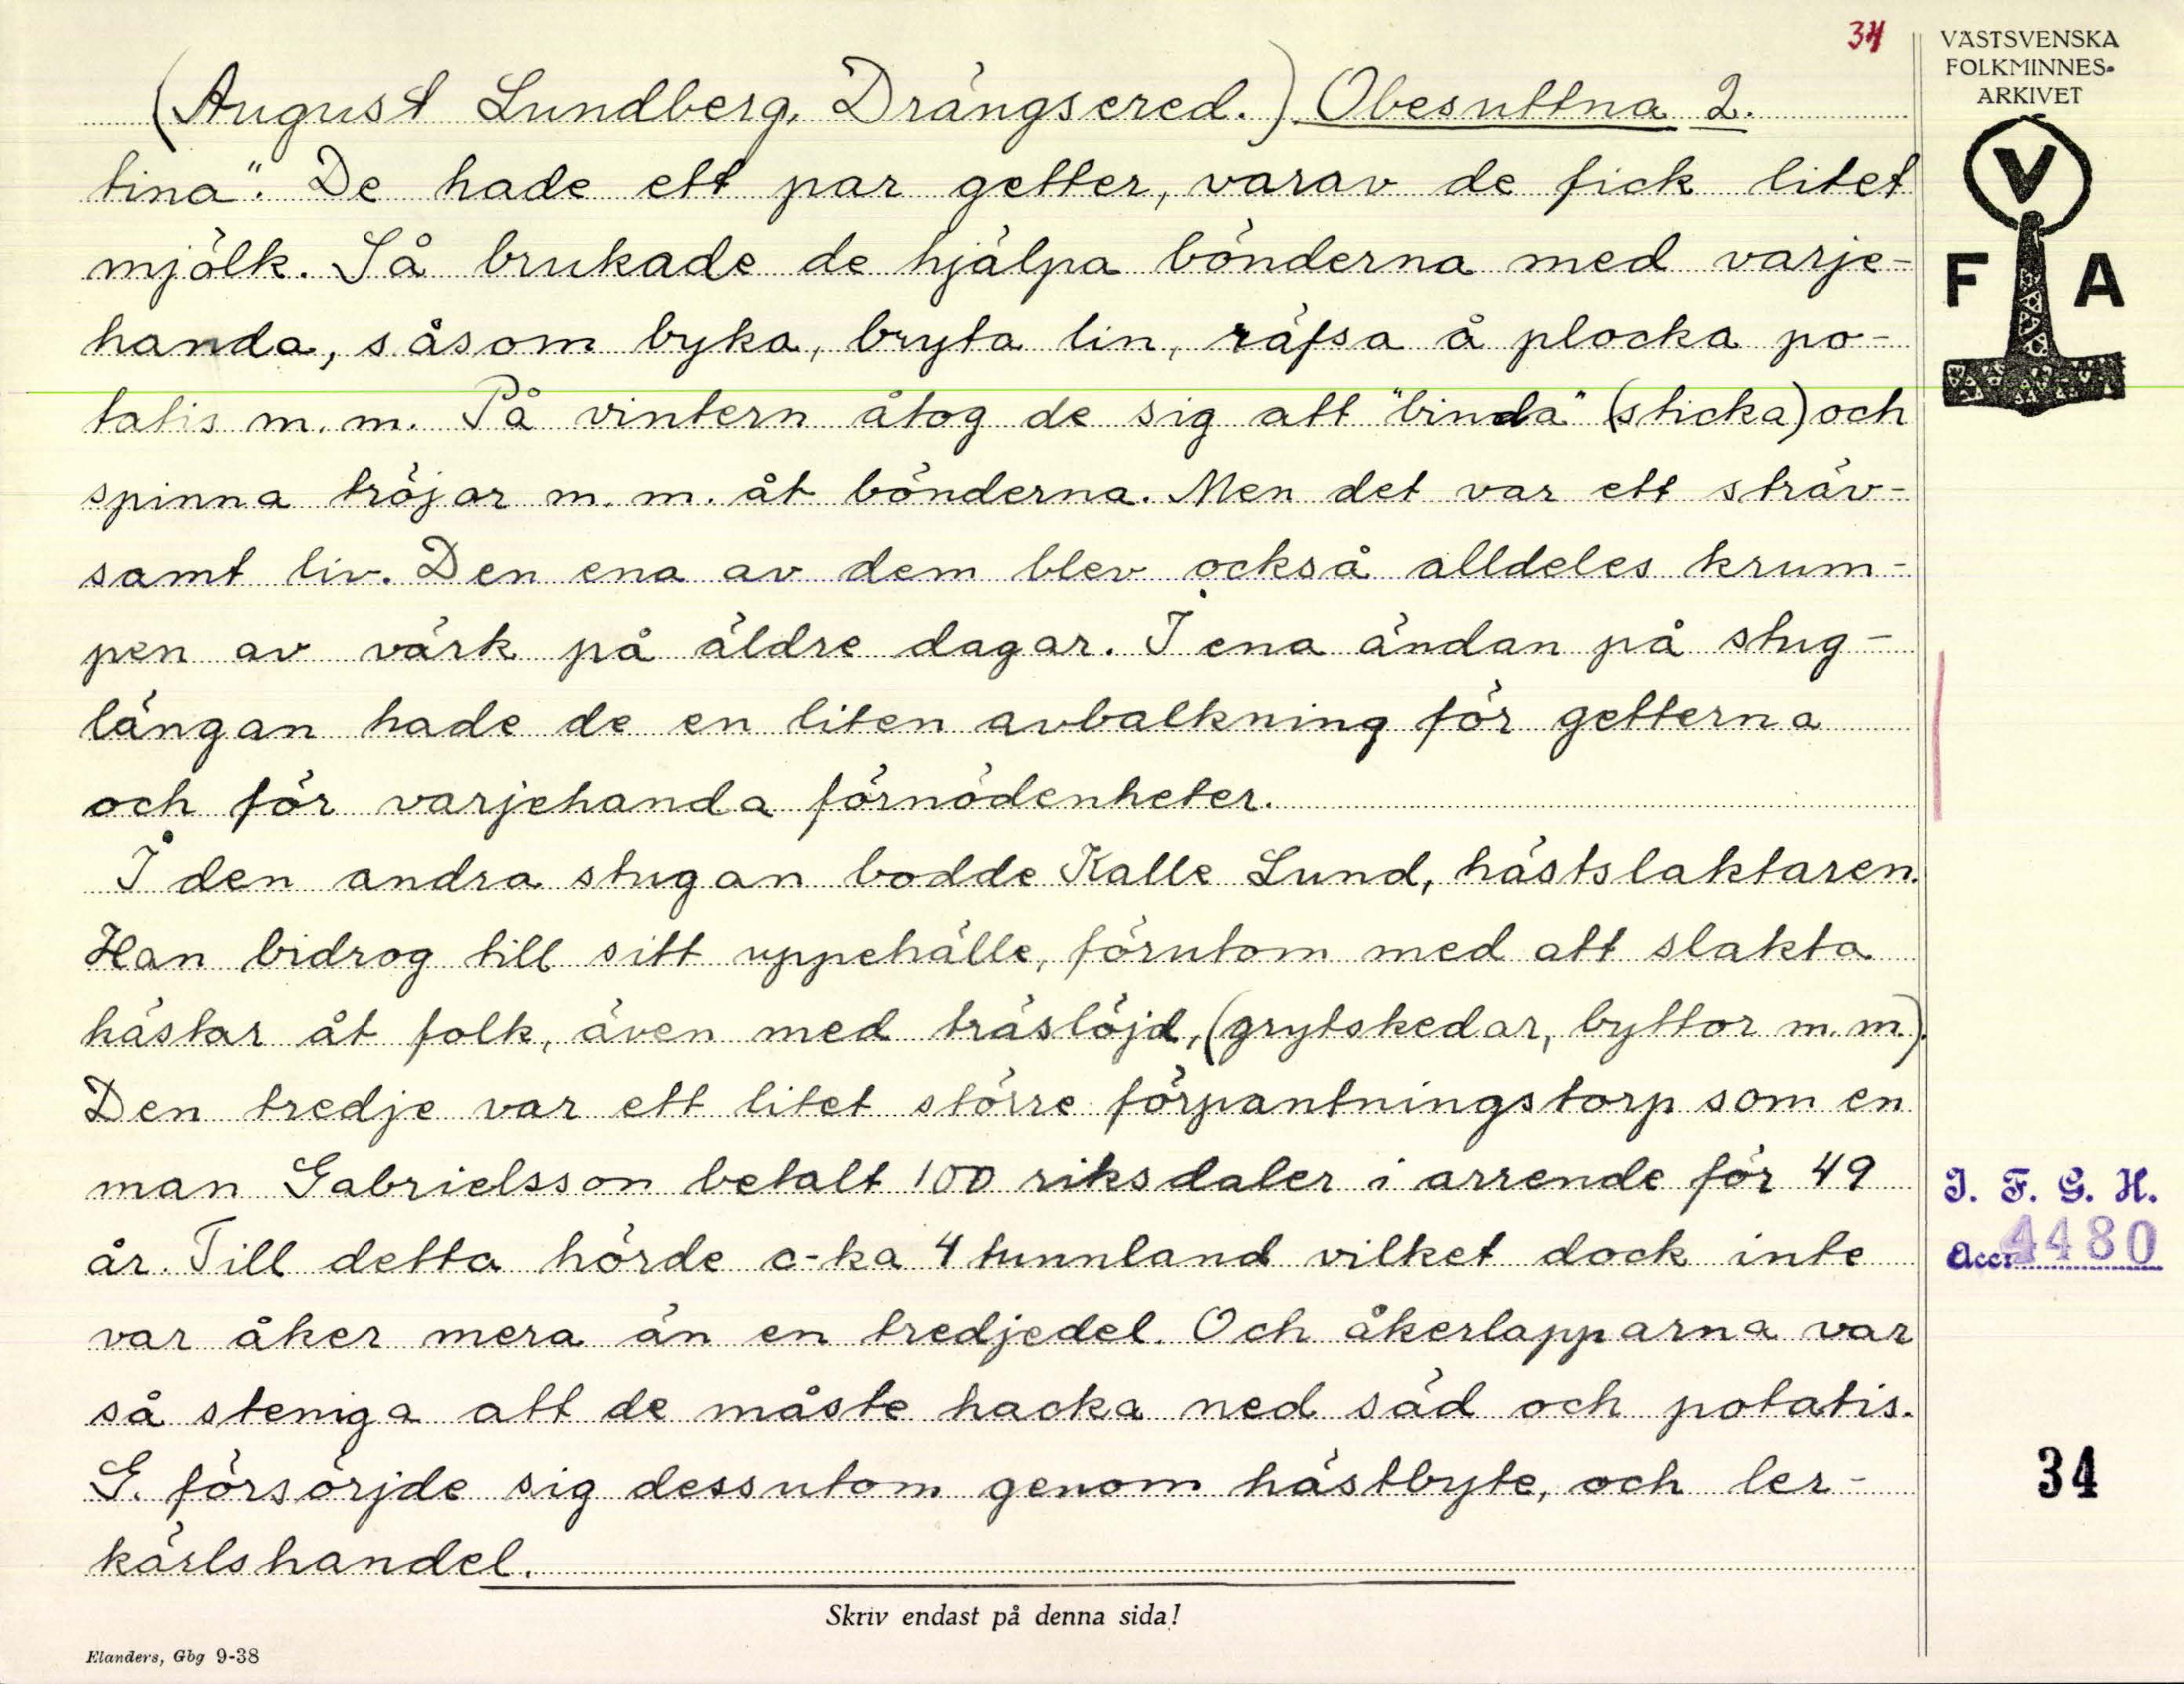 34
VÄSTSVENSKA
FOLKMINNES-
ARKIVET
V
F A
(August Lundberg, Drängsered.) Obesuttna 2.
tina". De hade ett par getter, varav de fick litet
mjölk. Så brukade de hjälpa bönderna med varje-
handa, såsom byka, bryta lin, räfsa å plocka po-
tatis m. m. På vintern åtog de sig att "binda" (sticka) och
spinna tröjor m. m. åt bönderna. Men det var ett sträv-
samt liv. Den ena av dem blev också alldeles krum-
pen av värk på äldre dagar. I ena ändan på stug-
längan hade de en liten avbalkning för getterna
och för varjehanda förnödenheter.
I den andra stugan bodde Kalle Lund, hästslaktaren.
Han bidrog till sitt uppehälle, förutom med att slakta
hästar åt folk, även med träslöjd, (grytskedar, byttor m. m.).
Den tredje var ett litet större förpantningstorp som en
man Gabrielsson betalt 100 riksdaler i arrende för 49
år. Till detta hörde c-ka 4 tunnland vilket dock inte
var åker mera än en tredjedel. Och åkerlapparna var
så steniga att de måste hacka ned säd och potatis.
G. försörjde sig dessutom genom hästbyte, och ler-
kärlshandel.
I. F. G. H.
Accr 4480
34
Skriv endast på denna sida!
Elanders, Gbg 9-38